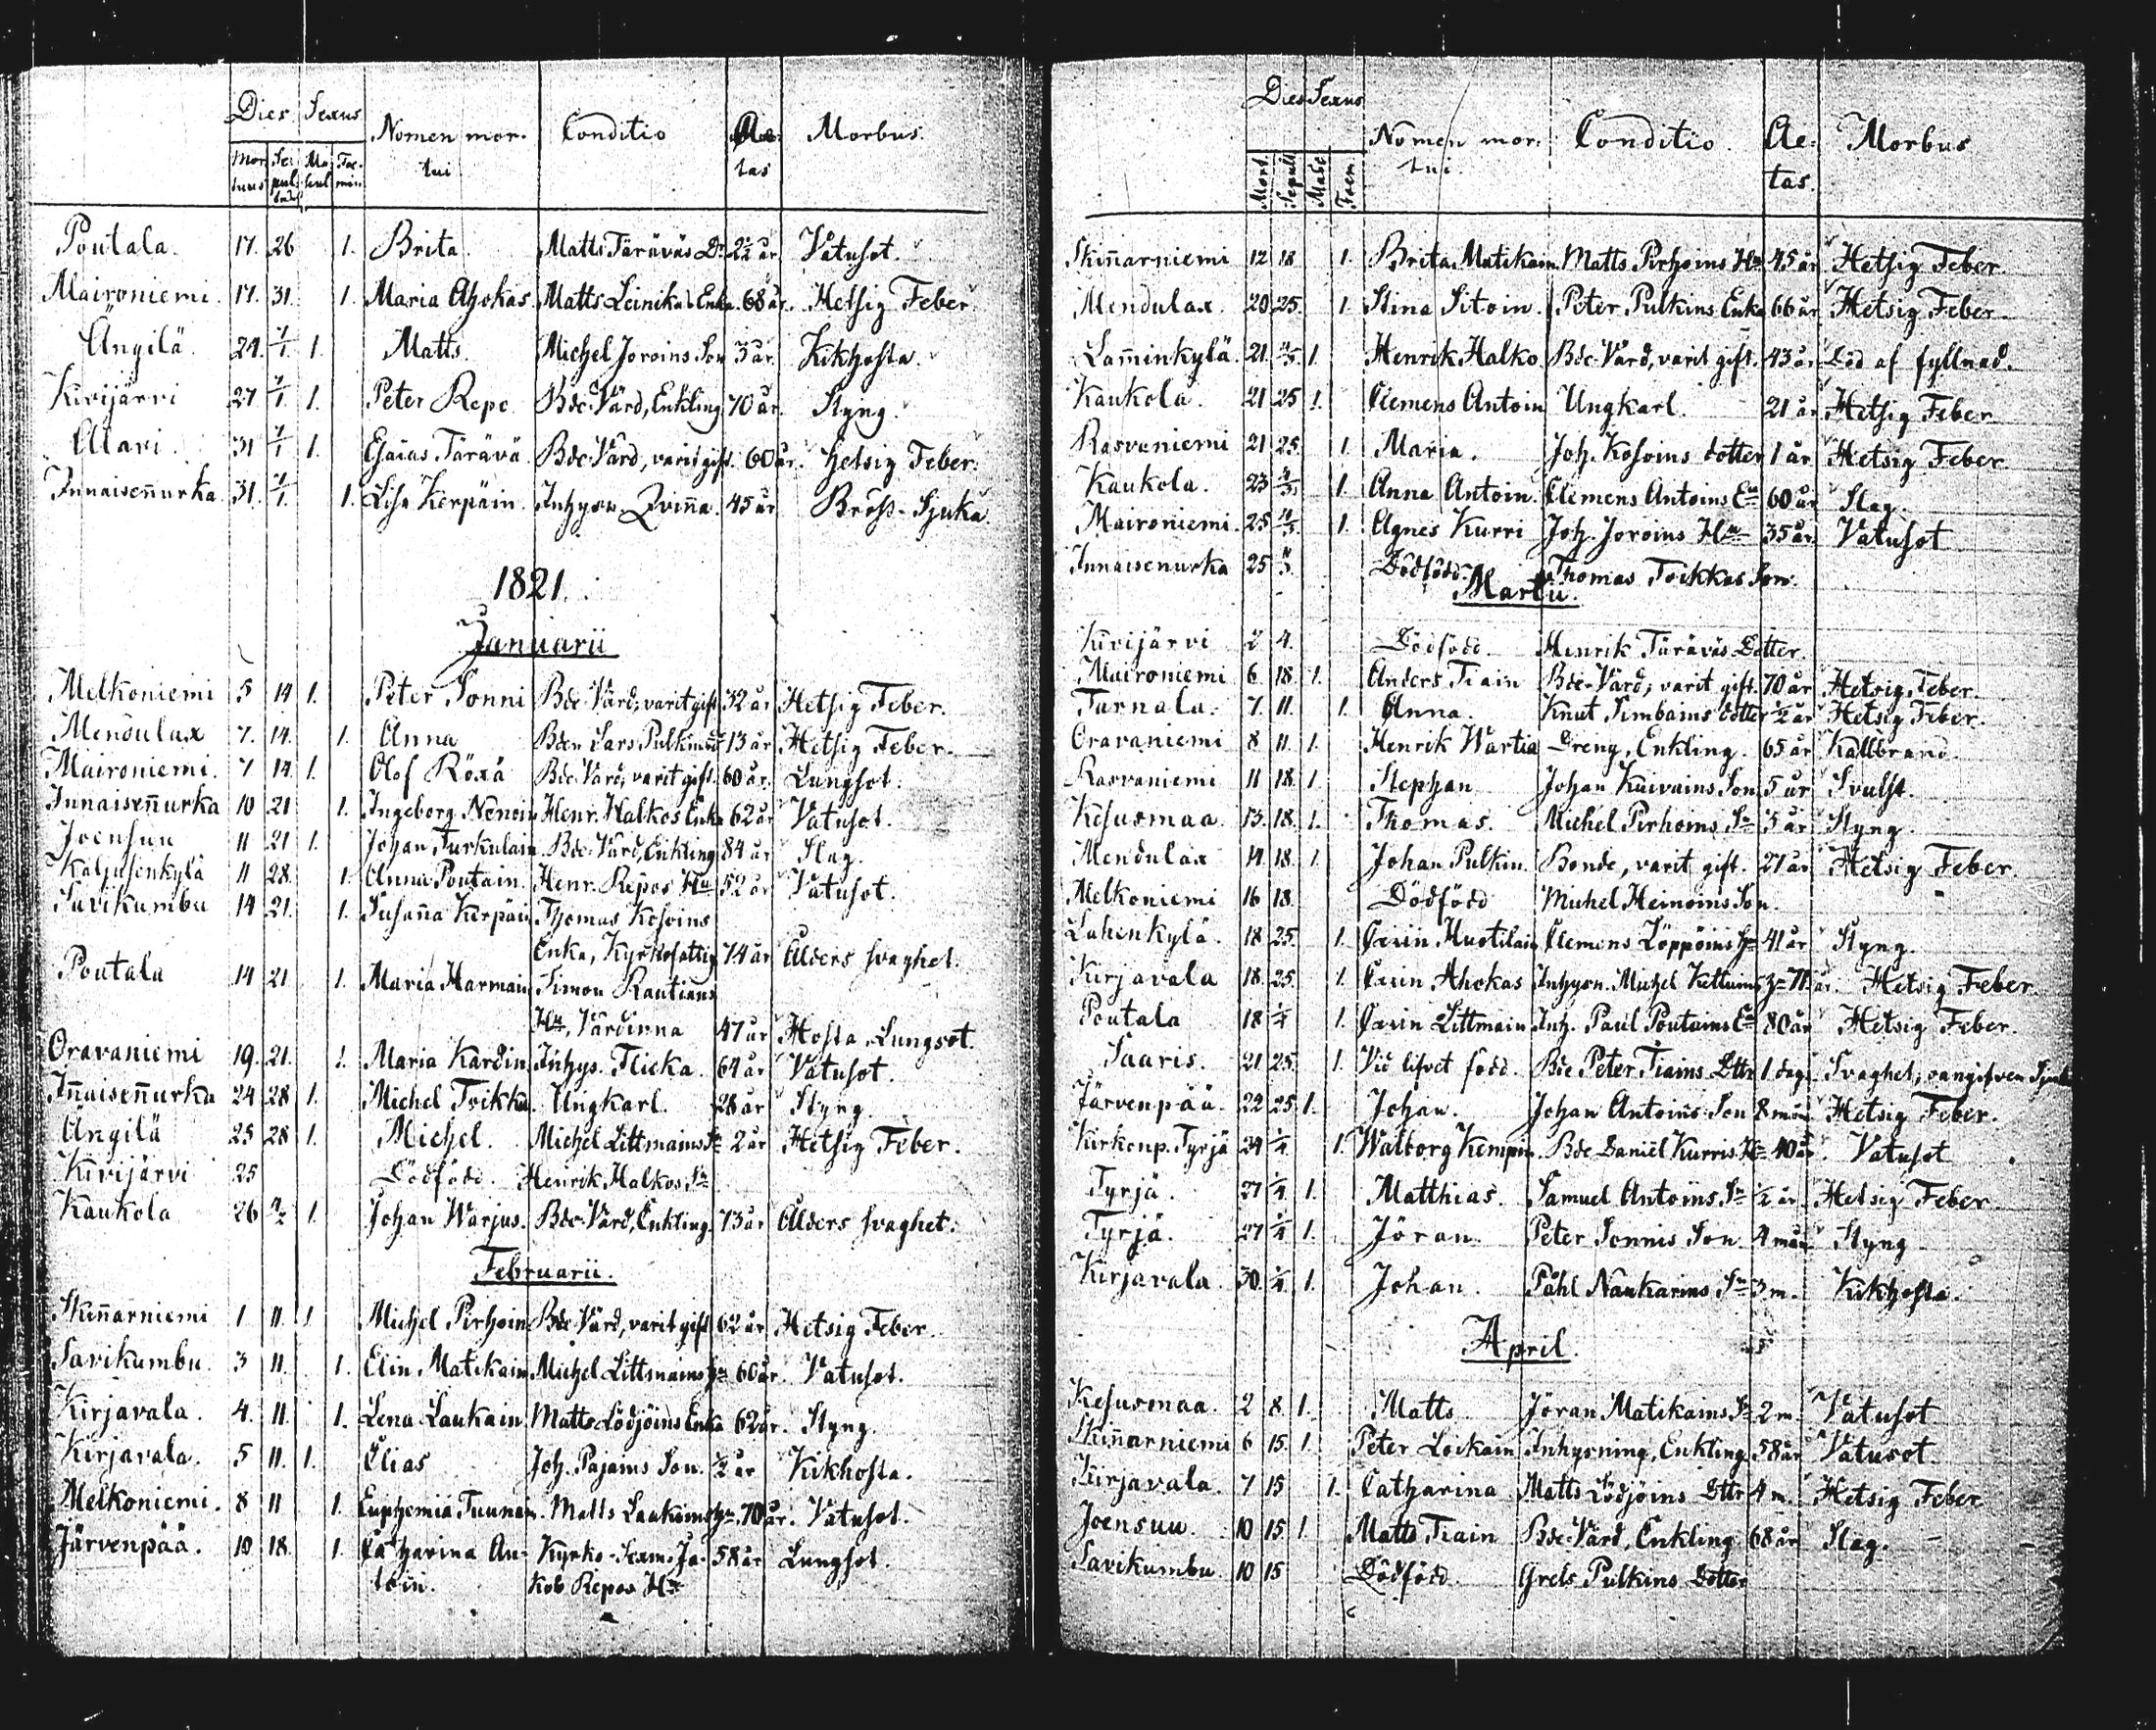 Dies Sexus
Nomen mor- Conditio Ae- Morbus.
Mor Se Ma Foe-
tuus pul scul min tui tas
Poutala. 17. 26 1. Brita Matts Täräväs Dr 2½ år Vatusot.
Maironiemi. 17. 31. 1. Maria Ahokas Matts Leinikas Enka. 68 år. Hetsig Feber
Ängilä 24. 7/1. 1. Matts. Michel Joroins Son 3 år. Kikhosta.
Kivijärvi 27 7/1. 1. Peter Repo Bde-Värd, Enkling 70 år. Styng.
Ollari. 31 7/1 1. Esaias Tärävä. Bde-Värd, varit gift. 60 år. Hetsig Feber.
Innaisennurka. 31. 7/1. 1. Lisa Kerpäin. Inhyses Qvinna. 45 år Bröst-Sjuka
1821.
Januarii
Melkoniemi 5 14 1. Peter Sonni Bde-Värd, varit gift 32 år Hetsig Feber.
Mendulax 7. 14. 1. Anna Bden Lars Pulkins Dr 13 år Hetsig Feber.
Maironiemi. 7 14. 1. Olof Röxä Bde-Värd, varit gift. 60 år. Lungsot.
Innaisennurka 10 21 1. Ingeborg Nenoin Henr. Halkos Enka 62 år Vatusot.
Joensuu 11 21 1. Johan Turkulain Bde-Värd, Enkling 84 år Slag.
Kaljusenkylä 11 28. 1. Anna Poutain. Henr. Repos Hu 52 år Vatusot.
Savikumbu 14 21. 1. Susanna Kerpäin Thomas Kosoins
Enka, Kyrkofattig 74 år Ålders svaghet.
Poutala 14 21 1. Maria Harmain Simon Rautiains
Hu, Värdinna 47 år Hosta, Lungsot.
Oravaniemi 19. 21. 1. Maria Kardin Inhys. Flicka. 64 år Vatusot.
Innaisennurka 24 28 1. Michel Toikka. Ungkarl. 28 år Styng.
Ängilä 25 28 1. Michel. Michel Littmains Sn 2 år Hetsig Feber.
Kivijärvi 25 Dödfödd. Henrik Halkos Sn
Kaukola 26 4/2 1. Johan Warjus. Bde-Värd, Enkling. 73 år Ålders svaghet.
Februarii.
Skinnarniemi 1 11. 1 Michel Pirhoin Bde-Värd, varit gift 62 år Hetsig Feber.
Savikumbu. 3 11. 1. Elin Matikain Michel Littmains Hu 60 år. Vatusot.
Kirjavala. 4. 11. 1. Lena Laukain Matts Lödjöins Enka 62 år. Styng.
Kirjavala. 5 11. 1. Elias Joh. Pajains Son. ½ år Kikhosta.
Melkoniemi. 8 11 1. Euphemia Tuunain. Matts Laukains Hu. 70 år. Vatusot.
Järvenpää. 10 18. 1. Catharina An- Kyrko-Sexm. Ja- 58 år Lungsot.
toin. kob Repos Hu
Dies Sexus
Nomen mor- Conditio. Ae- Morbus
Mort. Sepult Masc Foem tui. tas.
Skinnarniemi 12 18 1. Brita Matikain Matts Pirhoins Hu 45 år Hetsig Feber.
Mendulax. 20 25. 1. Stina Sitoin. Peter Pulkins Enka 66 år Hetsig Feber.
Lamminkylä. 21. 4/3. 1. Henrik Halko Bde-Värd, varit gift. 43 år Död af fyllnad.
Kaukola. 21 25 1. Clemens Antoin Ungkarl. 21 år Hetsig Feber
Rasvaniemi 21 25. 1. Maria. Joh. Kosoins dotter 1 år Hetsig Feber.
Kaukola. 23 4/3. 1. Anna Antoin. Clemens Antoins Ea 60 år Slag.
Maironiemi. 25 4/3. 1. Agnes Kurri Joh. Joroins Hu 35 år Vatusot
Innaisenurka 25 4/3. Dödfödd. Thomas Toikkas Son.
Martii.
Kivijärvi 2 4. Dödfödd. Henrik Täräväs Dotter.
Maironiemi 6 18. 1. Anders Tiain Bde-Värd, varit gift. 70 år Hetsig Feber.
Tarnala. 7. 11. 1. Anna. Knut Simbains dotter ½ år Hetsig Feber.
Oravaniemi 8 11. 1. Henrik Wartia Dreng, Enkling. 65 år Kallbrand.
Rasvaniemi 11 18. 1 Stephan Johan Kuivains Son 5 år Svulst.
Kesusmaa. 13. 18. 1. Thomas. Michel Pirhoins Sn 3 år Styng.
Mendulax 14 18. 1. Johan Pulkin. Bonde, varit gift. 27 år Hetsig Feber.
Melkoniemi 16 18. Dödfödd Michel Heinoins Son.
Lahenkylä. 18 25. 1. Carin Huotilain Clemens Löppöins Hu 41 år Styng.
Kirjavala 18. 25. 1. Carin Ahokas Inhysn. Michel Kettuins Hu 71 år. Hetsig Feber.
Poutala 18 1/4 1. Carin Littmain Inh. Paul Poutains Ea 80 år Hetsig Feber.
Saaris. 21 25. 1. Vid lifvet född. Bde Peter Tiains Dttr 1 dag. Svaghet, oangifven Sjuk
Järvenpää. 22 25 1. Johan. Johan Antoins Son 8 mån Hetsig Feber.
Kirkonp. Tyrjä 24 1/4. 1. Walborg Kempin. Bde Daniel Kurris Hu 40 år. Vatusot
Tyrjä. 27 1/4 1. Matthias. Samuel Antoins Sn ½ år Hetsig Feber.
Tyrjä. 27 1/4 1. Jöran Peter Sonnis Son 4 mån Styng
Kirjavala. 30. 1/4 1. Johan. Påhl Naukarins Sn 3 m. Kikhosta.
April.
Kesusmaa. 2 8. 1. Matts Jöran Matikains Sn 2 m. Vatusot
Skinnarniemi 6 15. 1. Peter Loikain Inhysning, Enkling 58 år Vatusot.
Kirjavala. 7 15 1. Catharina Matts Lödjöins Dttr 4 m. Hetsig Feber
Joensuu. 10 15 1. Matts Tiain Bde-Värd, Enkling 68 år Slag.
Savikumbu. 10 15 Dödfödd. Grels Pulkins Dotter